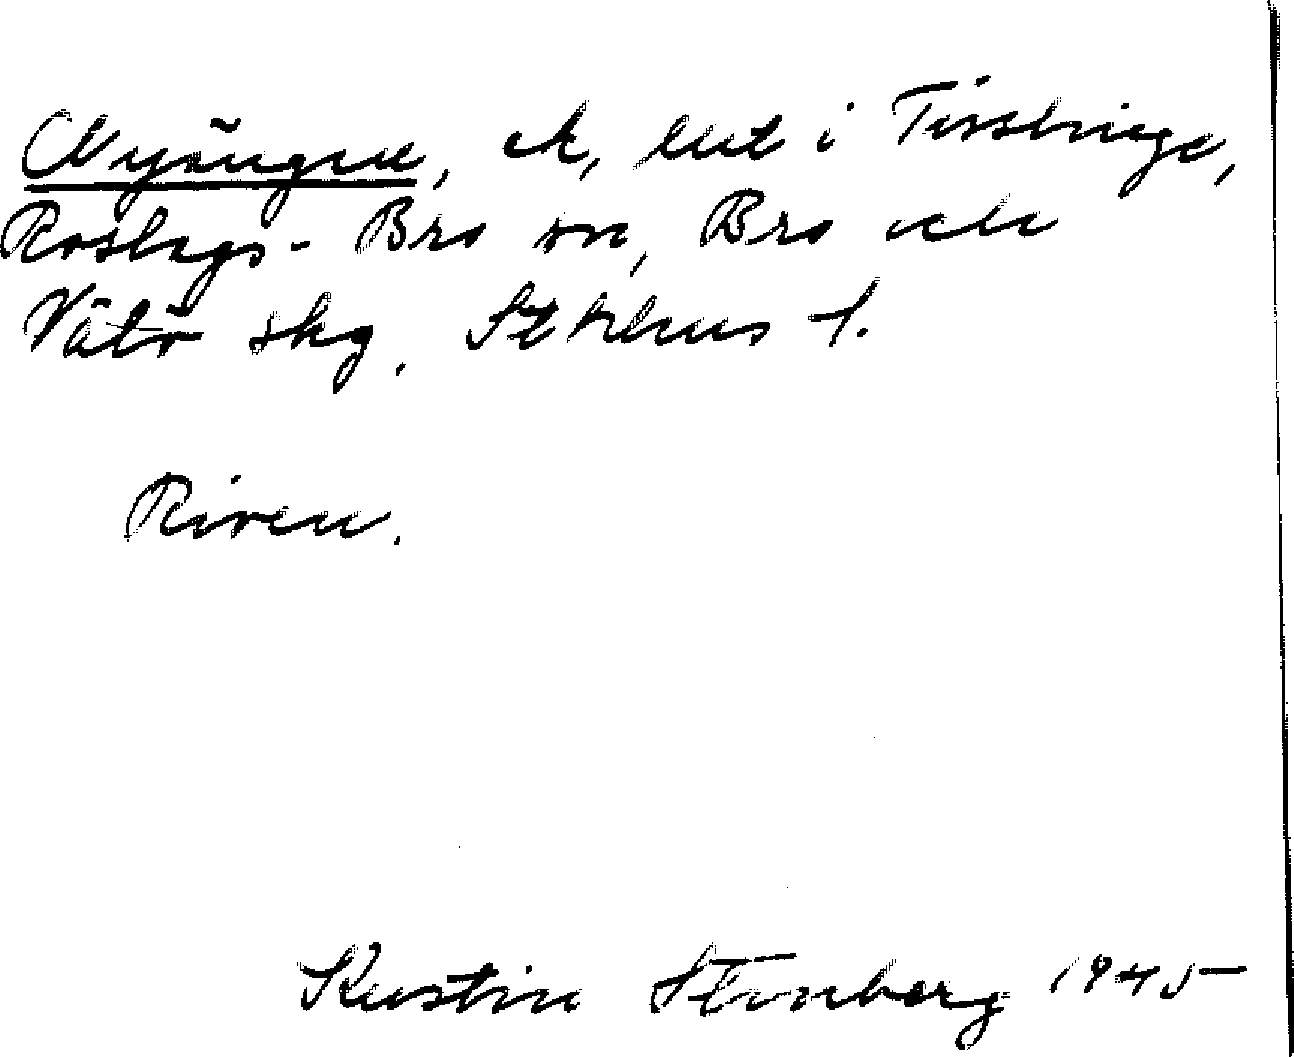 Nyängen, ch, lut i Tisslinge,
Roslags-Bro sn, Bro och
Vätö skg. Stkhlms l.
Riven.
Kerstin Stenberg 1945